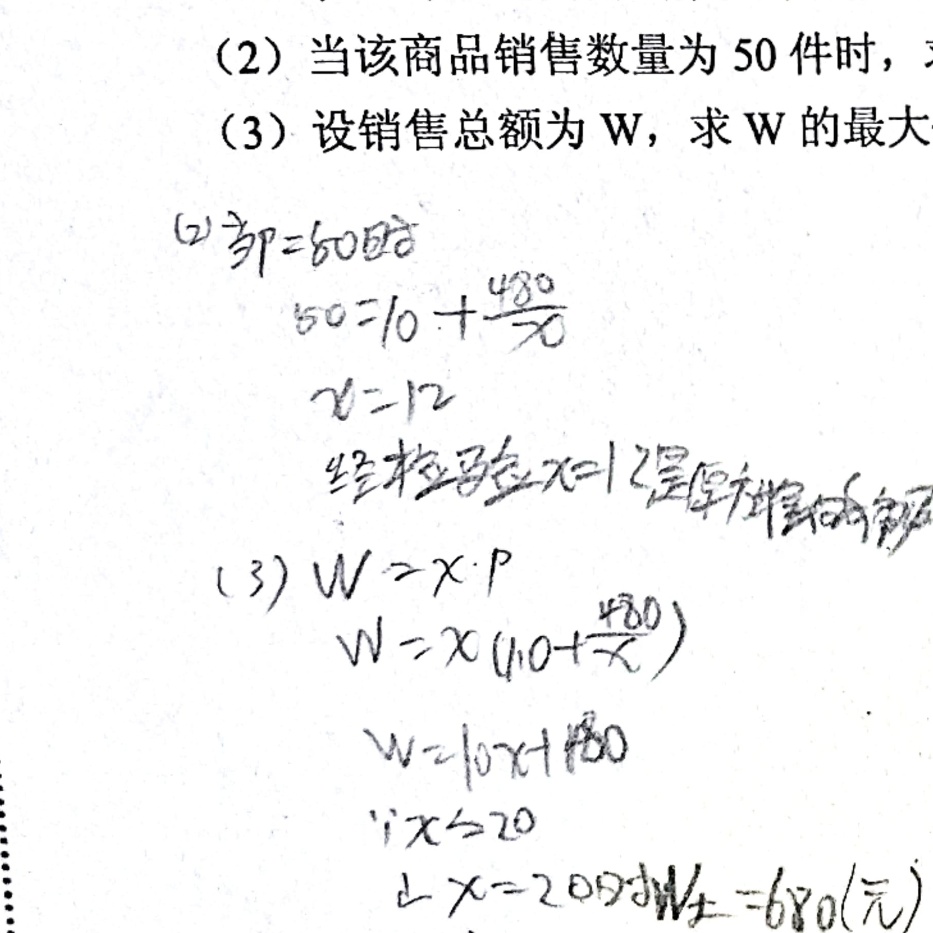 (2) 当该商品销售数量为 50 件时，
(3) 设销售总额为 W，求 W 的最大
(2) 当P=50时
50=10+480/x
x=12
经检验x=12是原方程的
(3) W=x·P
W=x(10+480/x)
W=10x+480
∵x≤20
∴x=20时W大=680(元)